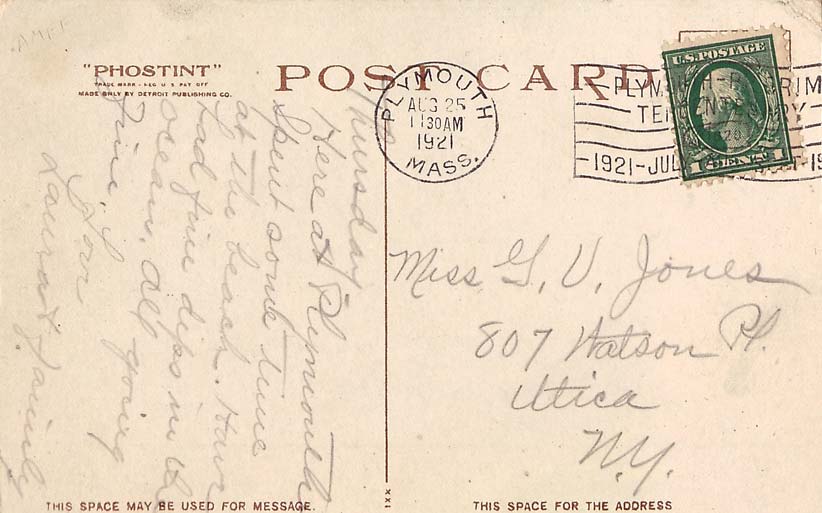 "PHOSTINT"
TRADE MARK - REG U S PAT OFF
MADE ONLY BY DETROIT PUBLISHING CO.
POST CARD
PLYMOUTH
AUG 25
11 30 AM
1921
MASS.
1921-JUL
U.S. POSTAGE
Thursday
Here at Plymouth
Spent some time
at the beach. Have
had fine dips in the
ocean. All going
fine.
Love
Laura & family
Miss G. V. Jones
807 Watson Pl.
Utica
N.Y.
XXI
THIS SPACE MAY BE USED FOR MESSAGE.
THIS SPACE FOR THE ADDRESS